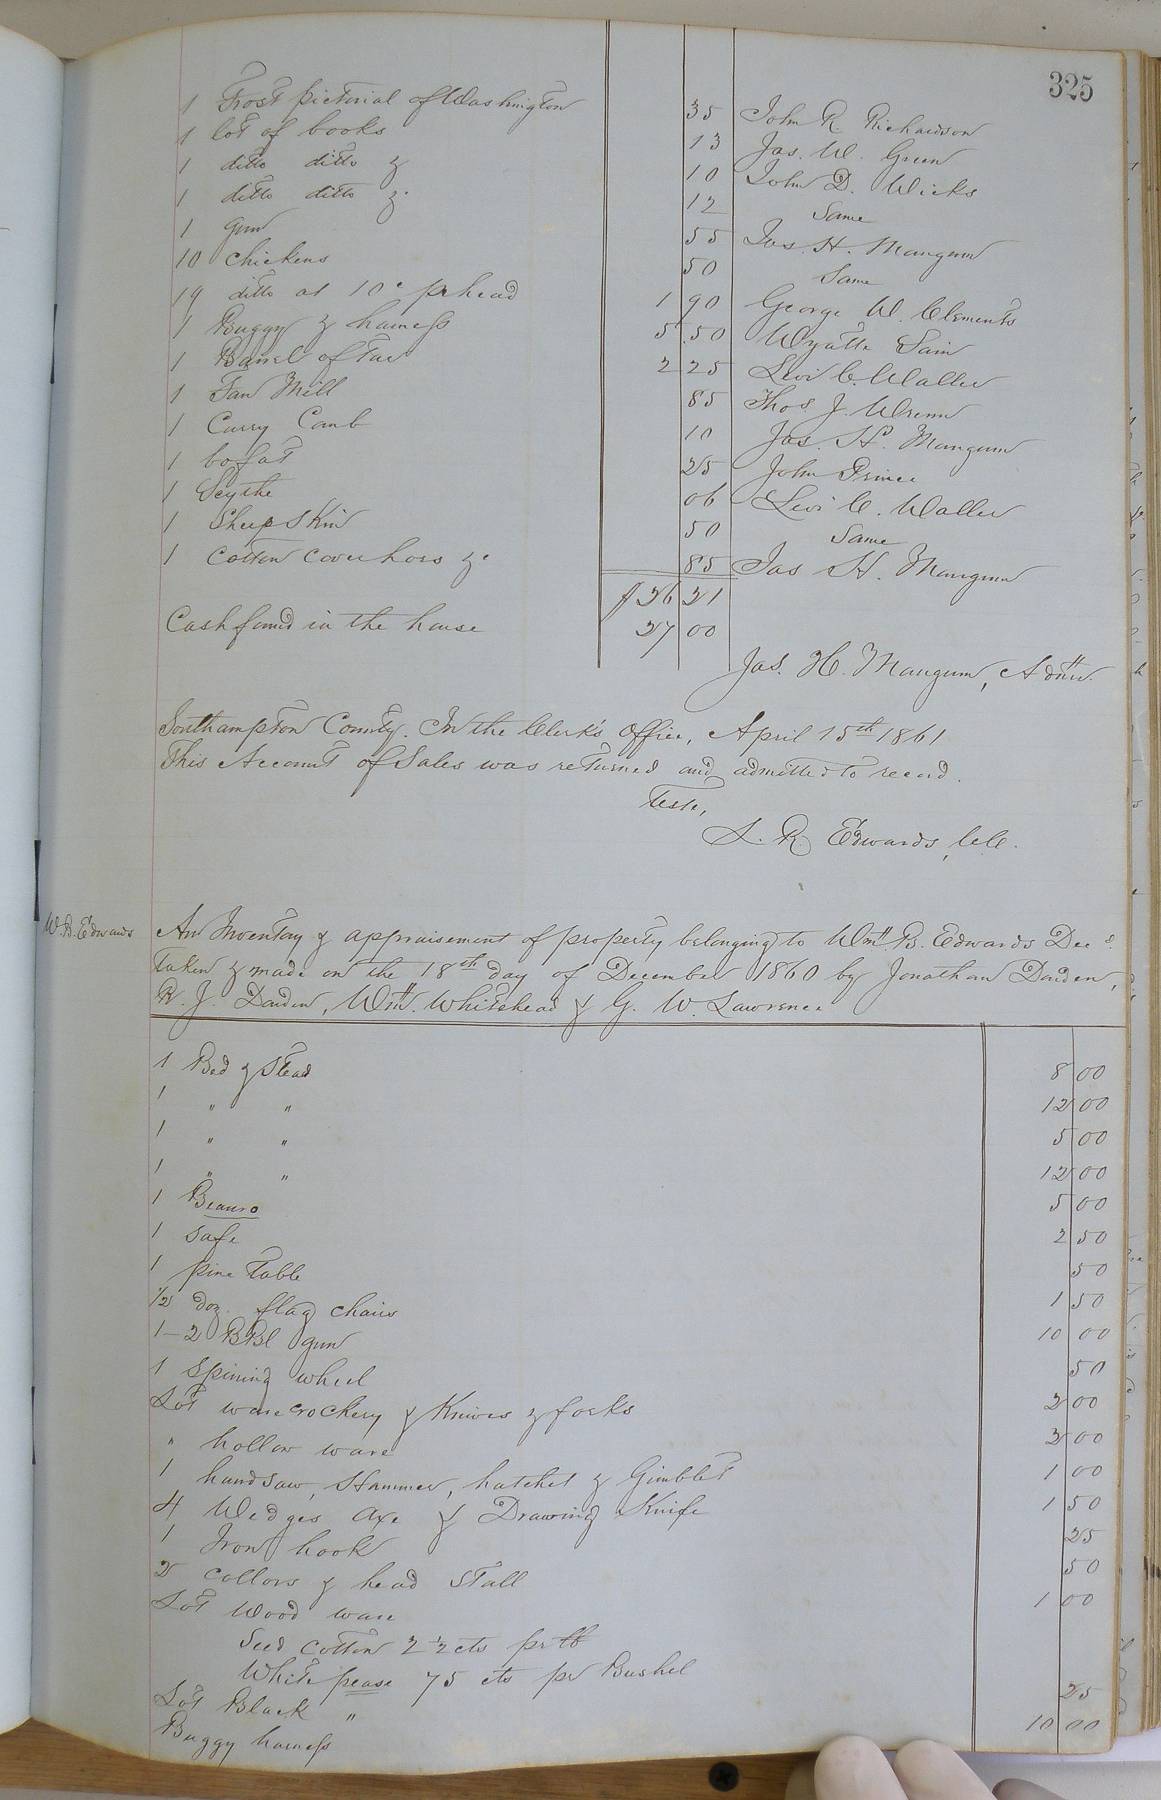 325
1 Frost pictorial of Washington 35 John R. Richardson
1 lot of books 13 Jas. W. Green
1 ditto ditto & 10 John D. Wicks
1 ditto ditto &c 12 Same
1 gun 55 Jas. H. Mangum
10 chickens 50 Same
19 ditto at 10c pr head 1 90 George W. Clements
1 Buggy & harness 5 50 Wyatte Sain
1 Barrel of Tar 2 25 Levi C. Waller
1 Fan Mill 85 Thos J. Wrenn
1 Curry Comb 10 Jas. H. Mangum
1 bofat 25 John Prince
1 Scythe 06 Levi C. Waller
1 Sheep Skin 50 Same
1 Cotton cover hoes &c 85 Jas H. Mangum
$26 21
Cash found in the house 27 00
Jas. H. Mangum, Admr.
Southampton County. In the Clerk's Office, April 15th 1861
This Account of Sales was returned and admitted to record.
Teste,
L. R. Edwards, CC.
W. B. Edwards
An Inventory & appraisement of property belonging to Wm. B. Edwards Decd.
taken & made on the 18th day of December 1860 by Jonathan Darden,
R. J. Darden, Wm. Whitehead & G. W. Lawrence
1 Bed & Stead 8 00
1 " " 12 00
1 " " 5 00
1 " " 12 00
1 Beauro 5 00
1 Safe 2 50
1 pine Table 50
1/2 doz. flag chairs 1 50
1-2 BBl gun 10 00
1 Spining wheel 50
Lot ware crockery & Knives & forks 2 00
" hollow ware 2 00
1 handsaw, Hammer, hatchet & Gimblet 1 00
4 Wedges axe & Drawing Knife 1 50
1 Iron hook 25
2 collors & head Stall 50
Lot Wood ware 1 00
Seed Cotton 2 1/2 cts pr lb
White pease 75 cts pr Bushel
Lot Black " 25
Buggy harness 10 00